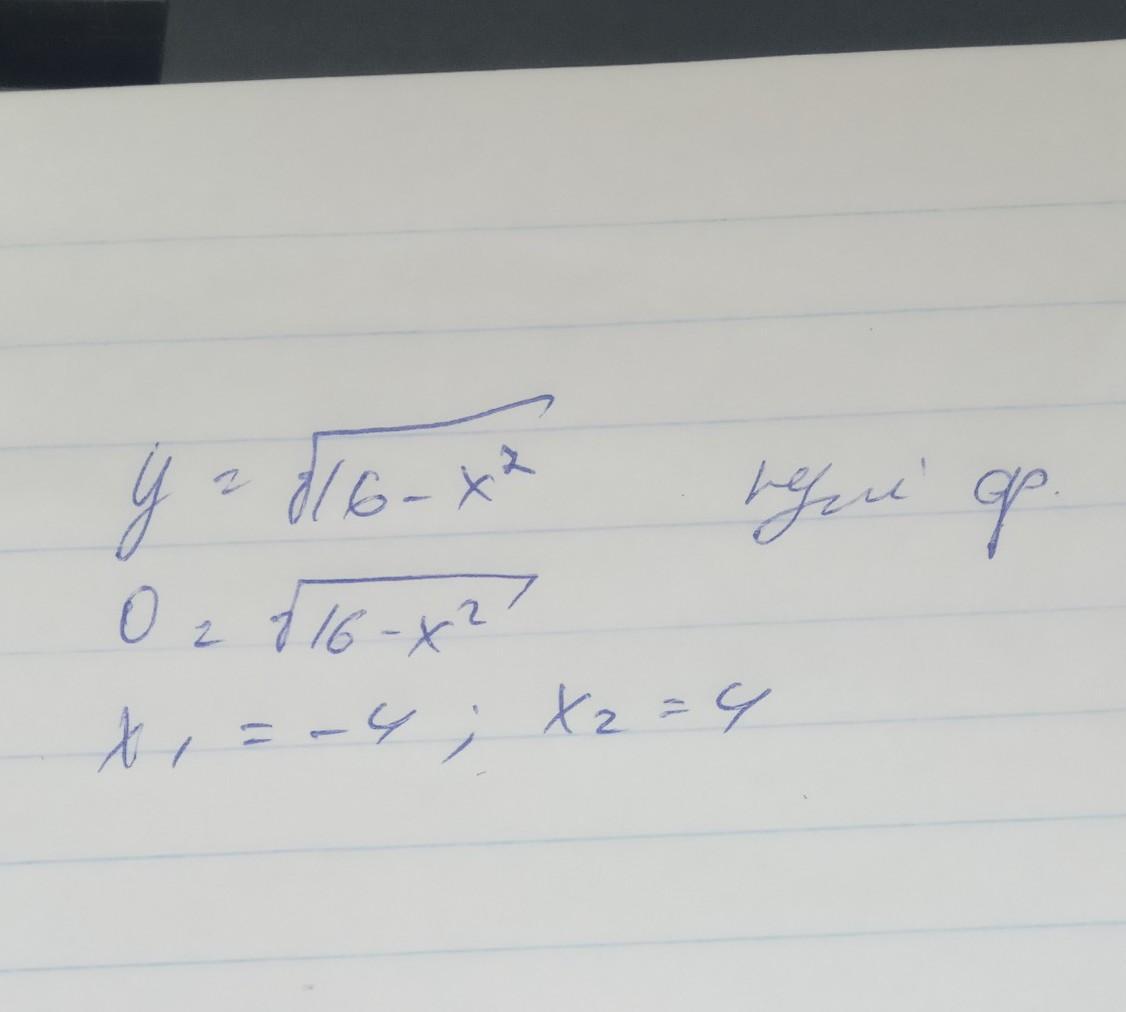 y = √16 - x² нулі ф.
0 = √16 - x²
x₁ = -4 ; x₂ = 4